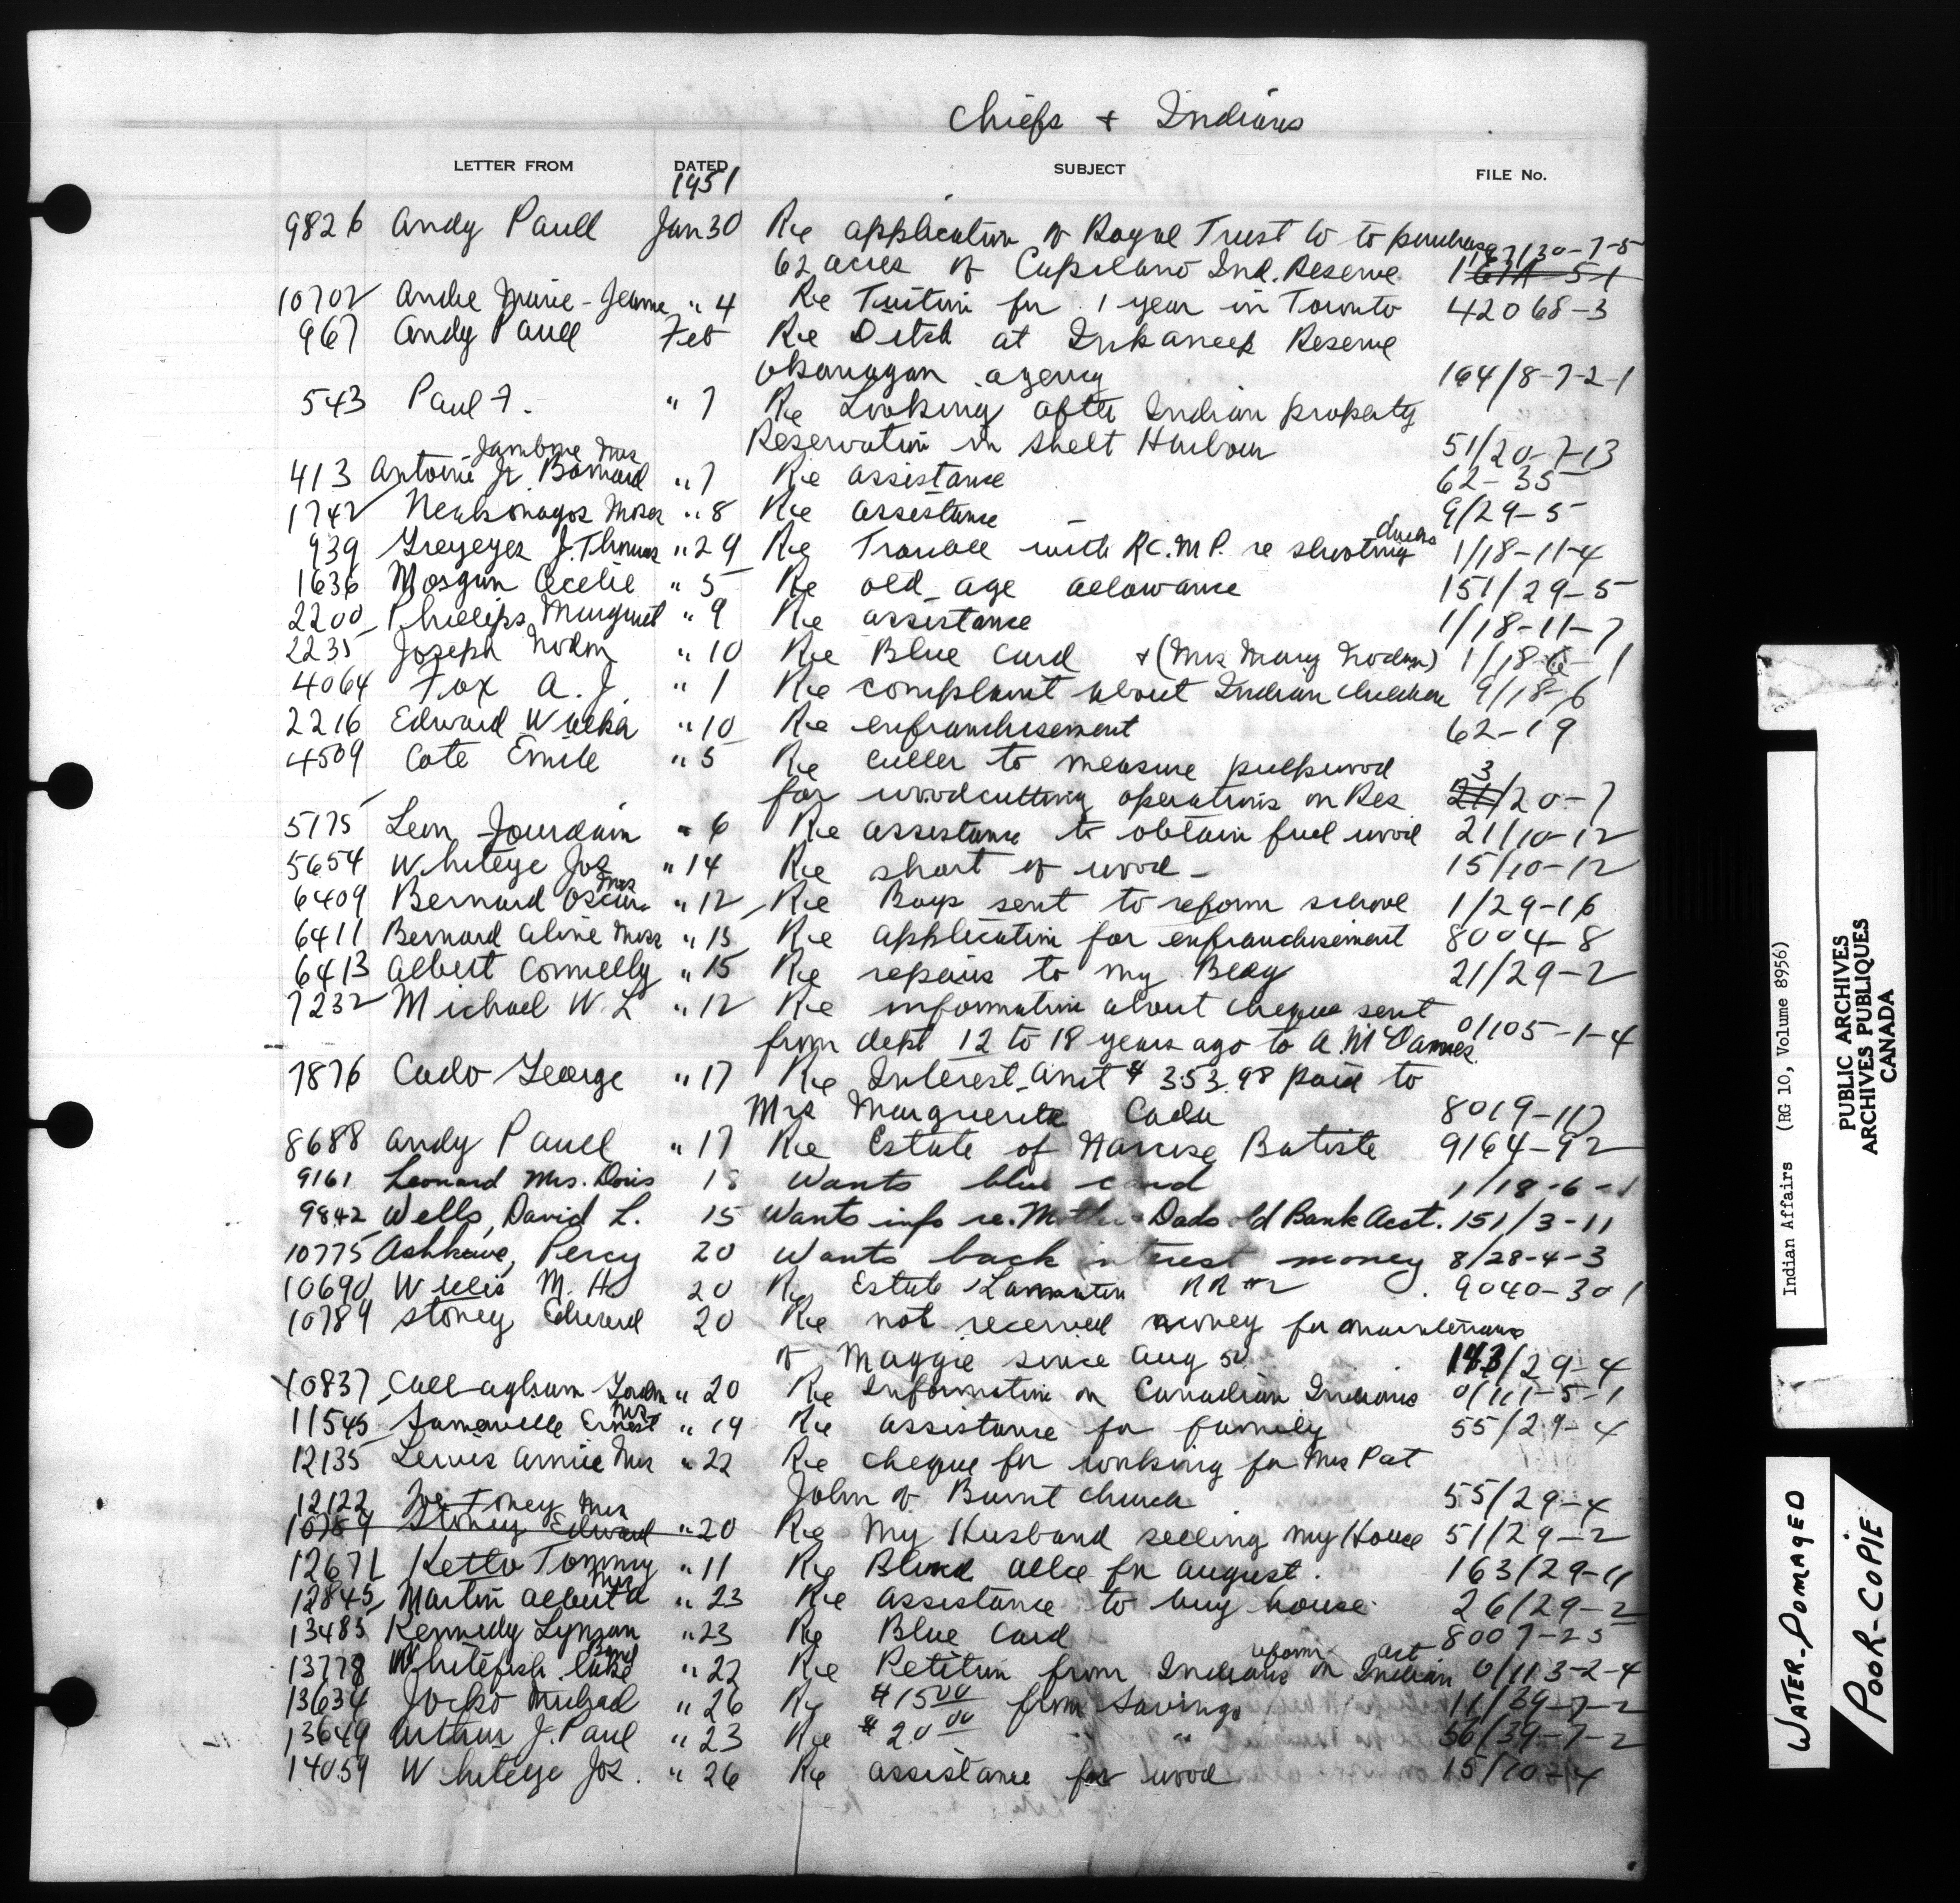 Chiefs + Indians
LETTER FROM DATED SUBJECT FILE No.
1951
9826 Andy Paull Jan 30 Re application of Royal Trust Co to purchase 167/30-7-5
62 acres of Capilano Ind. Reserve
10702 Andre Marie-Jeanne " 4 Re Tuition for 1 year in Toronto 42068-3
967 Andy Paull Feb Re Ditch at Inkaneep Reserve
Okanagan agency 164/8-7-2-1
543 Paul F. " 7 Re Looking after Indian property
Reservation in Shelt Harbour 51/20-7-13
Mrs
413 Antoine Jr Bernard " 7 Re assistance 62-35
1742 Moses " 8 Re assistance 9/29-5
ducks
939 Greyeyes J. Thomas " 29 Re Trouble with R.C.M.P. re shooting 1/18-11-4
1636 Morgan Cecelie " 5 Re old age allowance 151/29-5
2200 Phillips Margaret " 9 Re assistance 1/18-11-7
2235 Joseph Nodin " 10 Re Blue Card + (Mrs Mary Nodin) 1/18-6-1
4064 Fox A. J. " 1 Re complaint about Indian children 9/18-6
2216 Edward " 10 Re enfranchisement 62-19
4509 Cote Emile " 5 Re culler to measure pulpwood
for woodcutting operations on Res 3 21/20-7
5175 Leon Jourdain " 6 Re assistance to obtain fuel wood 21/10-12
5654 Whiteye Jos " 14 Re short of wood - 15/10-12
Mrs
6409 Bernard Oscar " 12 Re Boys sent to reform school 1/29-16
6411 Bernard Aline Miss " 15 Re application for enfranchisement 8004-8
6413 Albert Connelly " 15 Re repairs to my Bldg 21/29-2
7232 Michael W. L " 12 Re information about cheque sent
from dept 12 to 18 years ago to A. 0/105-1-4
7876 Cado George " 17 Re Interest amt $353.98 paid to
Mrs Marguerite Cada 8019-117
8688 Andy Paull " 17 Re Estate of Narcise Batiste 9164-92
9161 Leonard Mrs. Doris 18 Wants blue card 1/18-6-1
9842 Wells, David L. 15 Wants info re. Mother + Dads old Bank Acct. 151/3-11
10775 Ashkewe, Percy 20 Wants back interest money 8/28-4-3
10690 Willis M. H 20 Re Estate RR #2 9040-301
10789 Stoney Edward 20 Re not received money for maintenance
of Maggie since Aug 50 143/29-4
10837 Callaghan Gordon " 20 Re Information on Canadian Indians 0/111-5-1
Mrs
11545 Somerville Ernest " 19 Re assistance for family 55/29-4
12135 Lewis Annie Mrs " 22 Re cheque for working for Mrs Pat
John of Burnt Church 55/29-4
12122 Joe Toney Mrs
10789 Stoney Edward " 20 Re My Husband selling my House 51/29-2
12671 Ketlo Tommy " 11 Re Blind allce for August. 163/29-11
Mrs
12845 Martin Alberta " 23 Re assistance to buy house 26/29-2
13485 Kennedy Lynson " 23 Re Blue Card 8007-25
Band Act
13778 Whitefish Lake " 22 Re Petition from Indians on Indian 0/113-2-4
13634 Jocko Michael " 26 Re $15.00 from Savings 11/39-7-2
13649 Arthur J. Paul " 23 Re $20.00 " " 56/39-7-2
14059 Whiteye Jos. " 26 Re assistance for wood 15/10-4
Indian Affairs (RG 10, Volume 8956)
PUBLIC ARCHIVES
ARCHIVES PUBLIQUES
CANADA
WATER-DOMAGED
POOR-COPIE